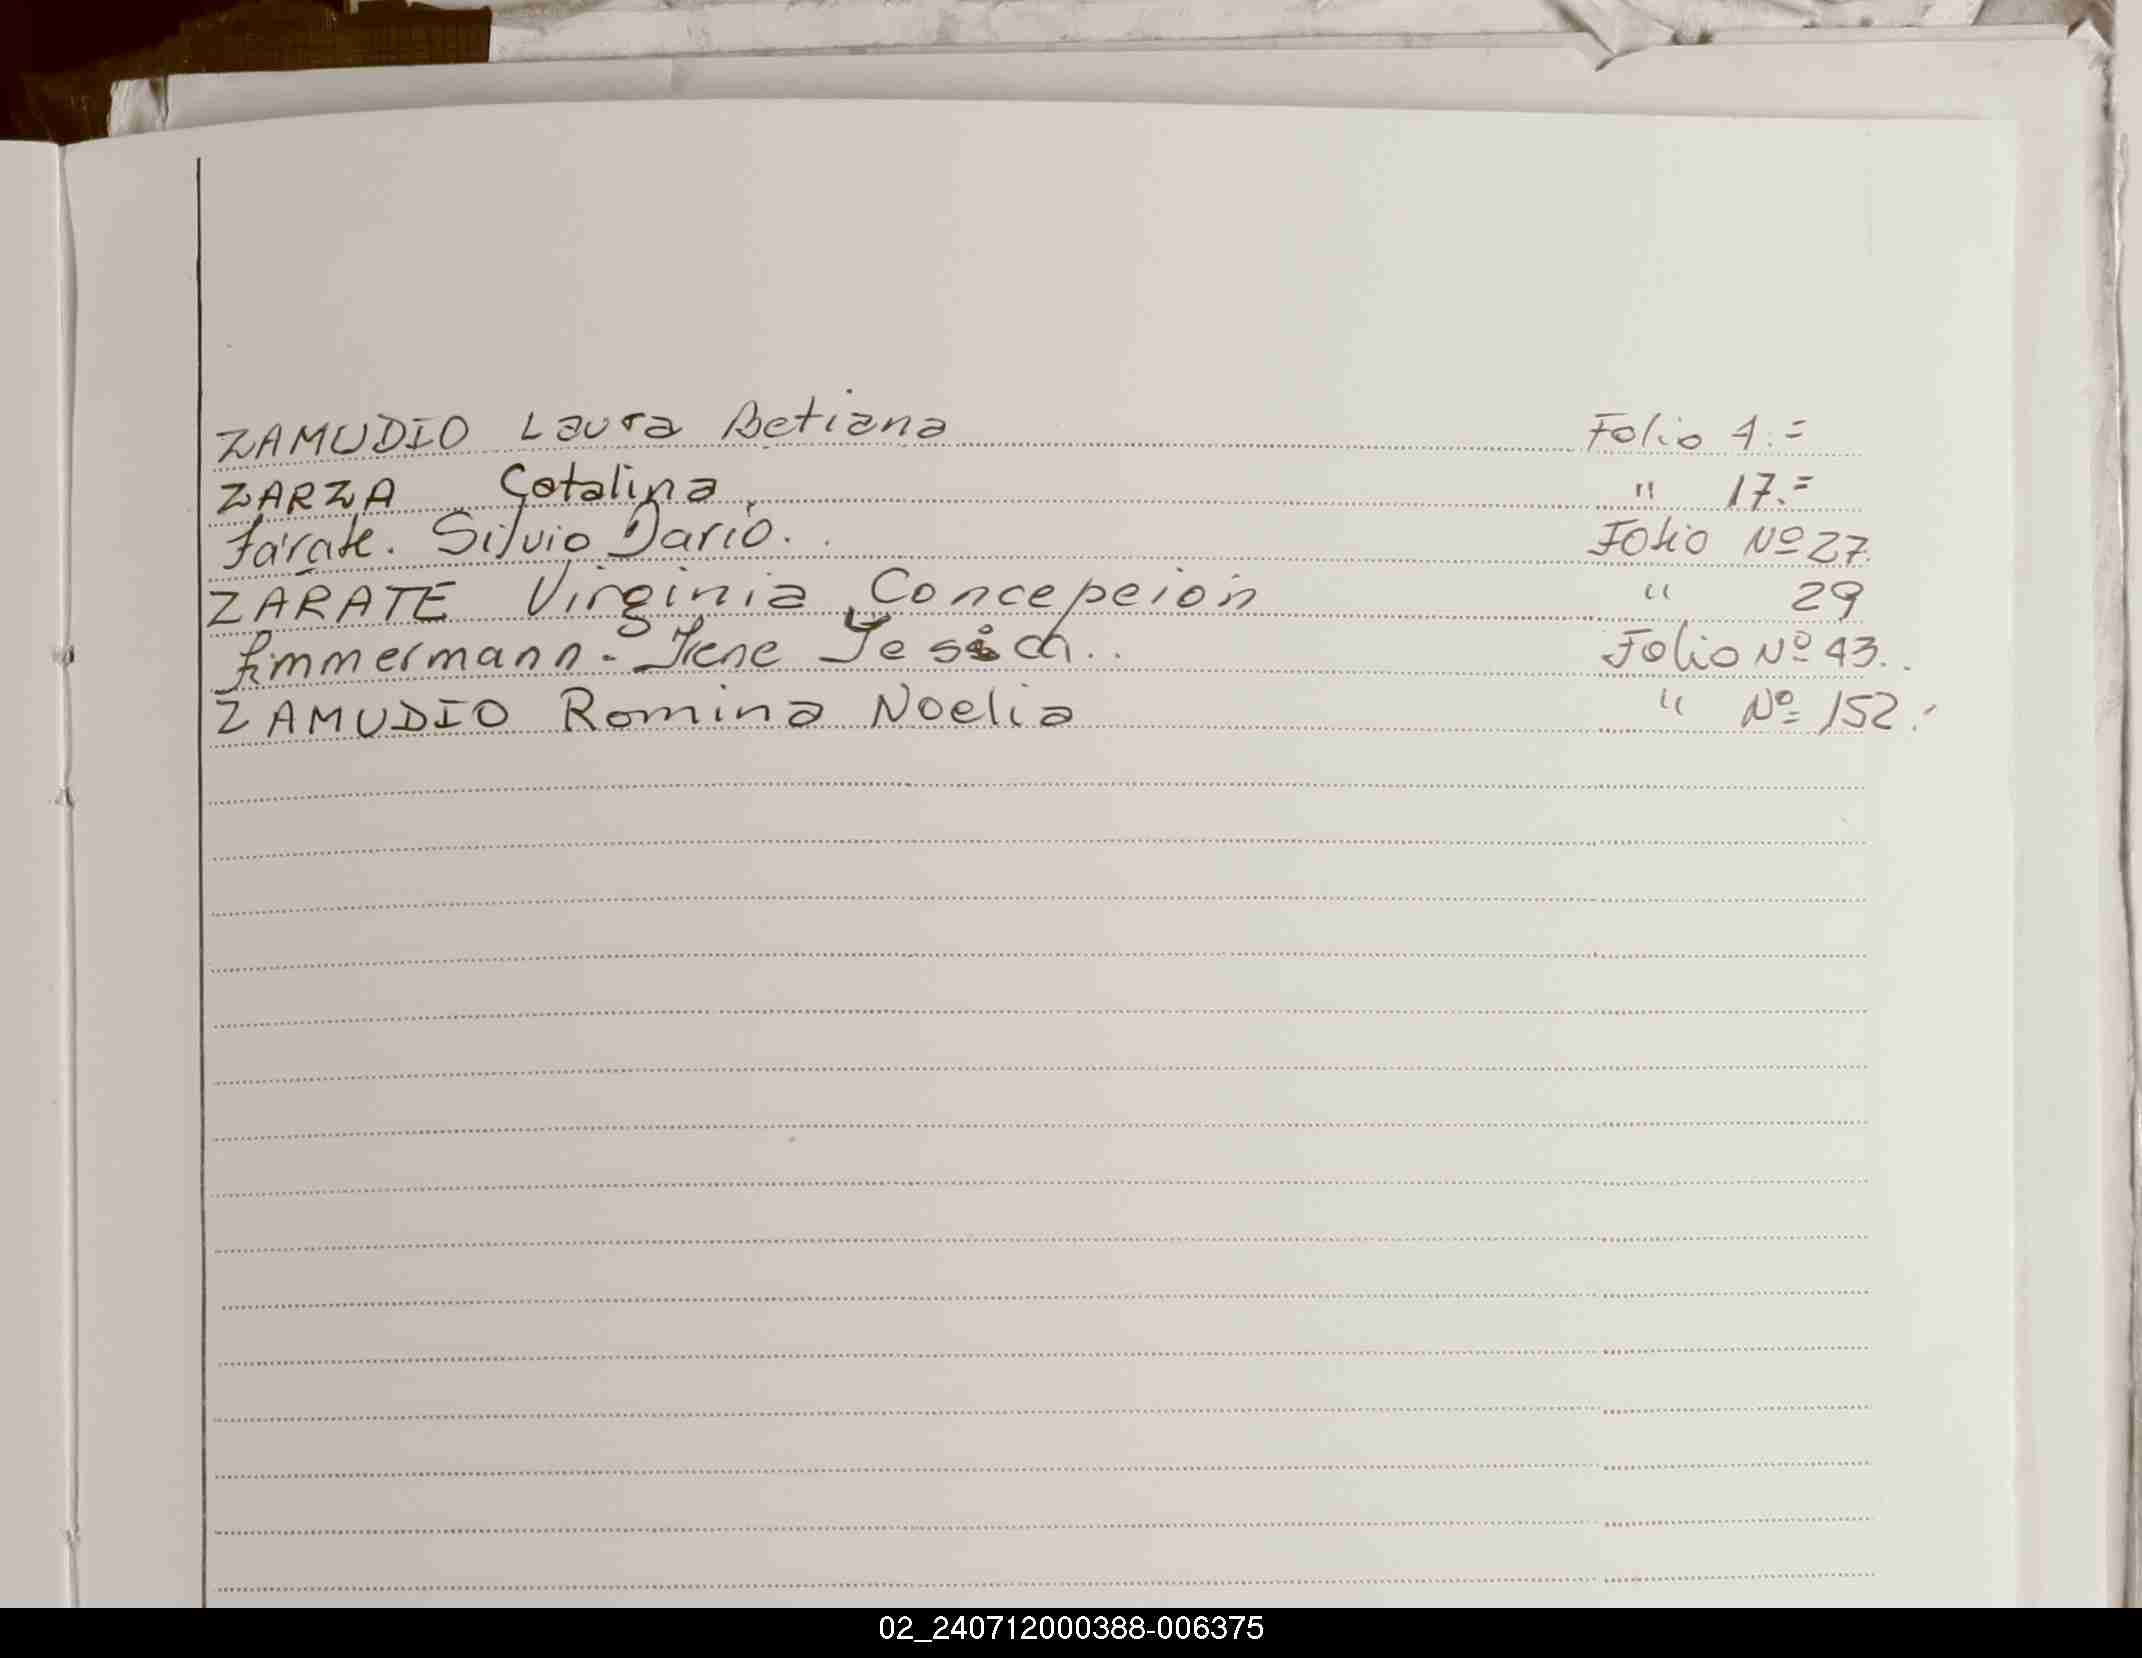 ZAMUDIO Laura Betiana Folio 1.=
ZARZA Catalina " 17.=
Zárate. Silvio Darió. Folio Nº 27
ZARATE Virginia Concepción " 29
Zimmermann - Irene Yesica.. Folio Nº 43..
ZAMUDIO Romina Noelia " Nº 152.-
02_240712000388-006375